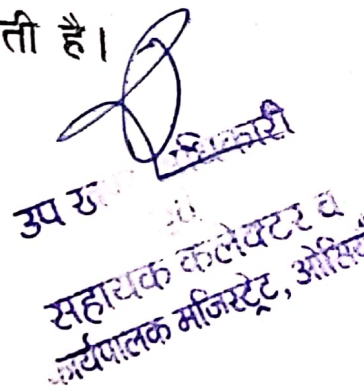 ती है।
उप ख
सहायक कलेक्टर व
कार्यपालक मजिस्ट्रेट, ओसि